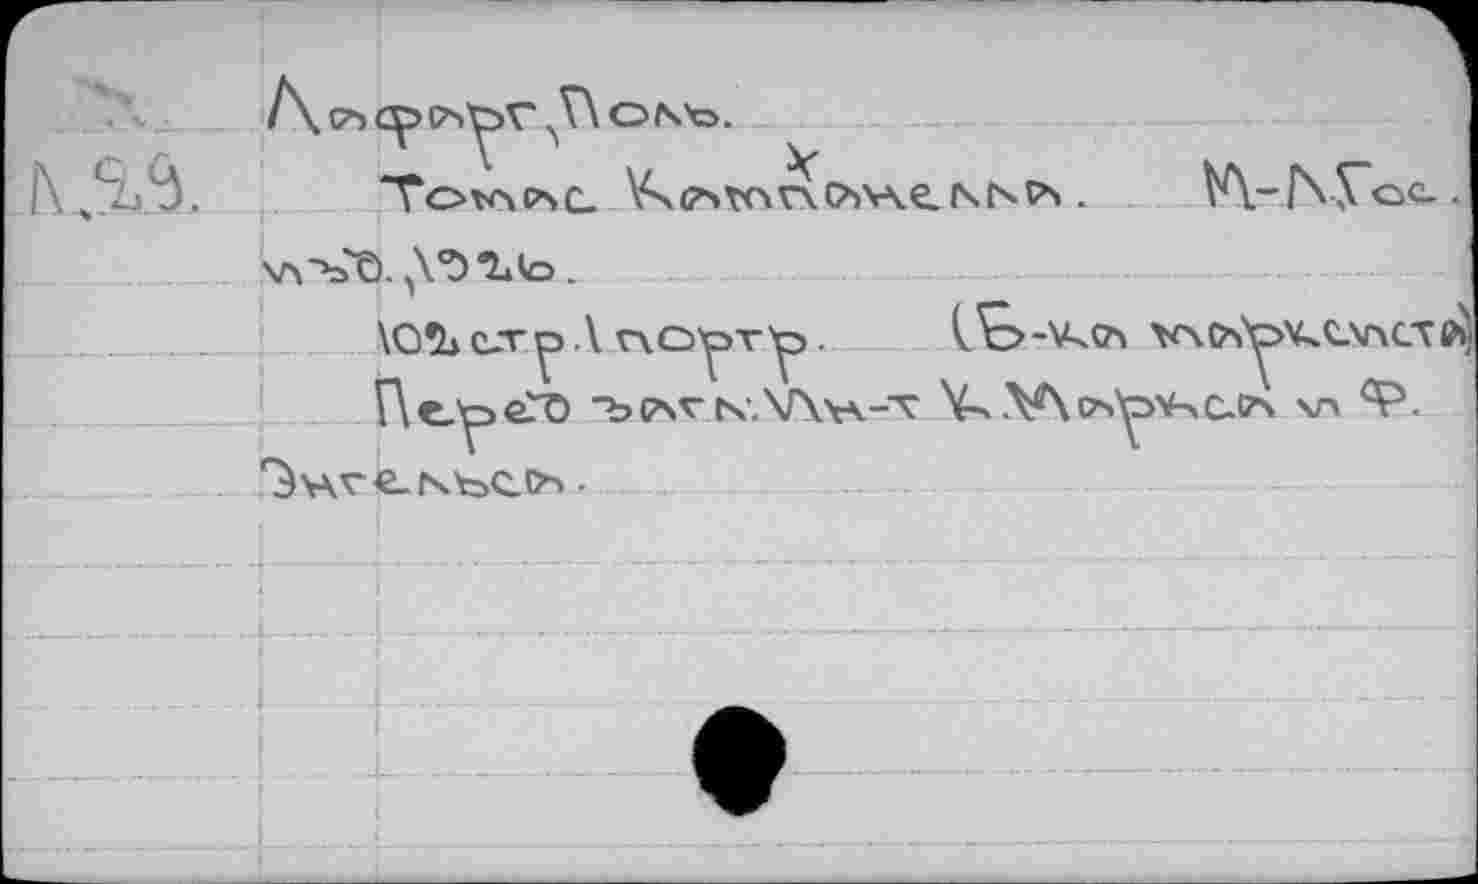 Лафарг, Поль.
Л.29. Томас Кампанелла. М-Л. Гос.
изд. 1926.
102 стр. 1 портр. (Б-ка марксиста)
Перед загл. Ин-т К. Маркса и Ф.
Энгельса.